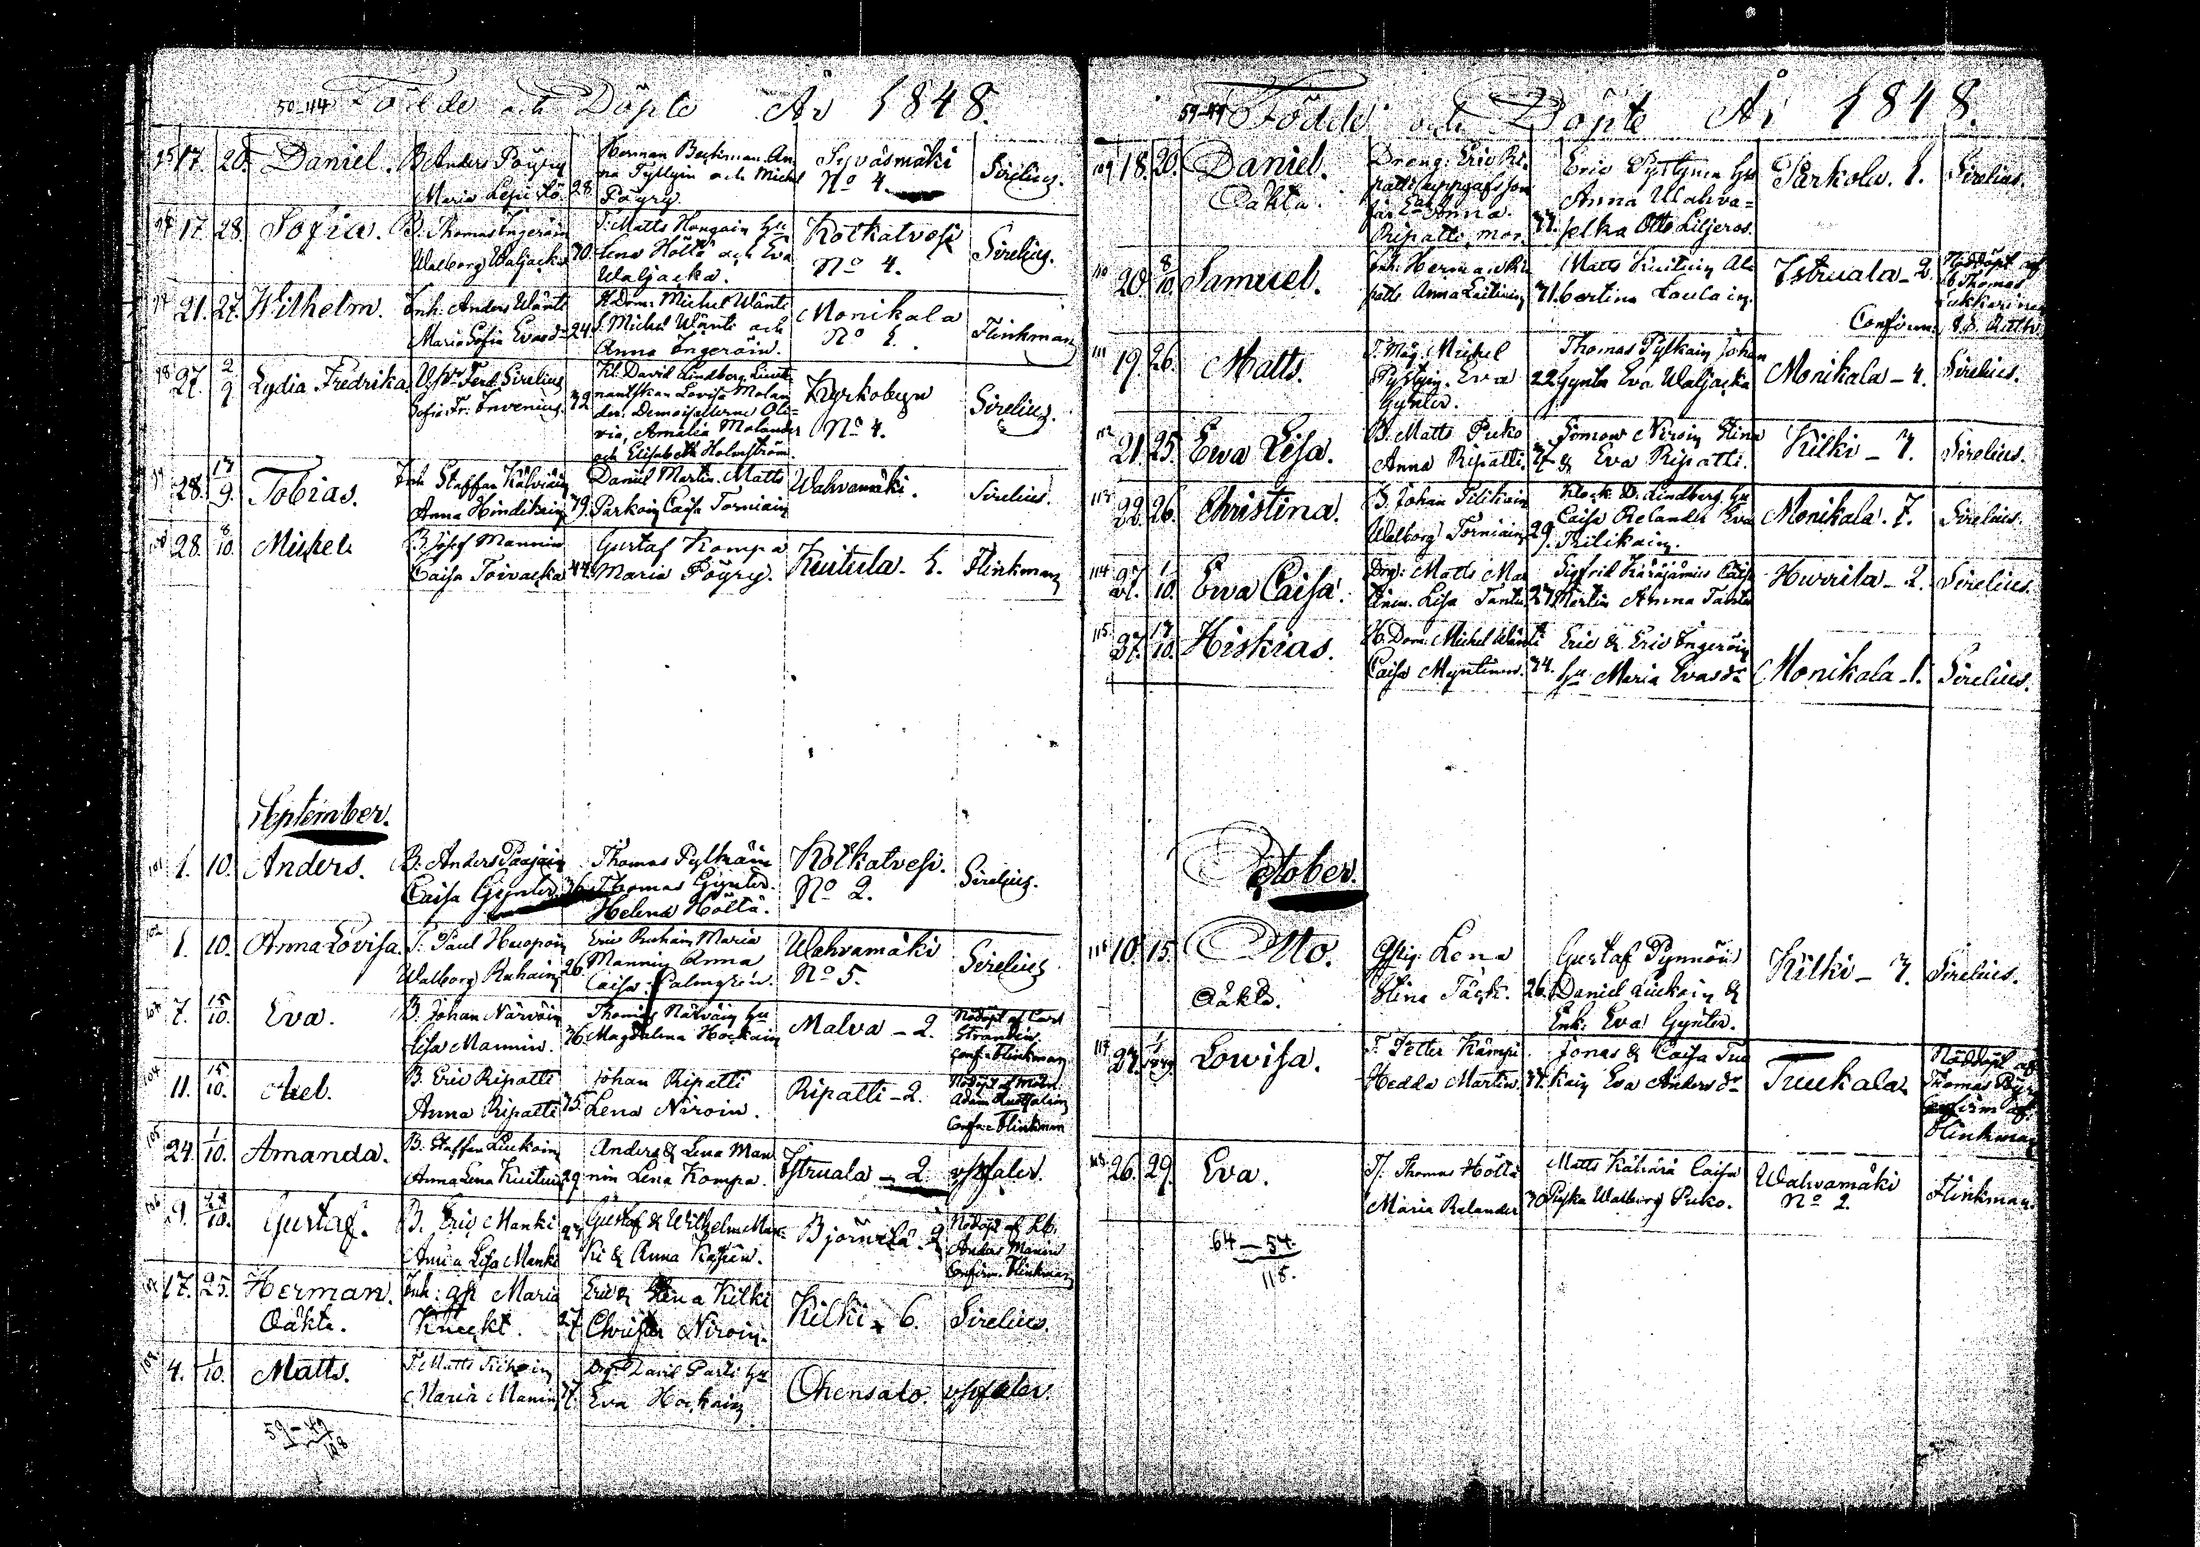 50-44 Födde och Döpte År 1848.
95 17. 20. Daniel. B. Anders Pöyry Herman Beckman An- Syväsmäki Sirelius.
Maria 28. na Pyllyin och Michel No 4.
Pöyry.
96 17. 28. Sofia. B. Thomas Ingeröin T. Matts Hu Kotkatvesi Sirelius.
Walborg Waljacka 30. Lena Höltä och Eva No 4.
Waljacka.
97 21. 27. Wilhelm. Inh. Anders Wänti H.Dom: Michel Wänti Monikala Flinkman
Maria Sofia Evasdr 24. S. Michel Wänti och No 1.
Anna Ingeröin.
98 27. 2/9 Lydia Fredrika Ferd. Sirelius Kl. David Lindberg Lieute- Kyrkobyn Sirelius.
Sofia Fr. Invenius. 32 nantskan Lovisa Molan- No 4.
der. Demoisellerna Oli-
via, Amalia Molander
och Elisabeth Holmström.
99 28. 17/9. Tobias. Inh Staffan Daniel Martin. Matts Wahvamäki. Sirelius.
Anna 39. Parkoin Caisa Torniain
100 28. 8/10. Michel. B. Josef Mannin Gustaf Kompa Kuitula. 1. Flinkman
Caisa Toivacka 44. Maria Pöyry.
September.
101 1. 10. Anders. B. Anders Paajain Thomas Pylkäin Kotkatvesi. Sirelius.
Caisa Gynter 36 Thomas Gynter. No 2.
Helena Höltä.
102 1. 10. Anna Lovisa. T. Paul Huopoin Eric Ruhain Maria Wahvamäki Sirelius
Walborg Ruhain 26. Mannin Anna No 5.
Caisa Palmgrén.
103 7. 15/10. Eva. B. Johan Närväin Thomas Närväin Hu Malva – 2. Nöddöpt af Carl
Lisa Mannin. 36 Magdalena Hockain Strandén
Conf: Flinkman
104 11. 15/10. Axel. B. Eric Ripatti Johan Ripatti Ripatti – 2. Nöddöpt af
Anna Ripatti 35. Lena Niroin. Adam
Conf: Flinkman
105 24. 1/10. Amanda. B. Staffan Liukoin Anders & Lena Man- Istruala – 2. uppfaler.
Anna Lena Kuituin 29. nin Lena Kompa.
106 9. 10. Gustaf. B. Eric Manki Gustaf & Wilhelm Man- Björnilä 2 Nöddöpt af
Anna Lisa Manki 27 ki & Anna Anders Mannin
Confirm. Flinkman
107 17. 25. Herman. Inh: qp Maria Eric & Stina Kilki Kilki – 6. Sirelius.
Oäkta. Kneckt. 27 Christer Niroin.
108 4. 1/10. Matts. T. Matts Drg. David Hu Ohensalo
Maria Mannin 37. Eva Hockain
59 – 49
108
59-49 Födde och Döpte År 1848.
109 18. 20. Daniel. Dräng: Eric Ri- Eric Pyllynen Hu Parkola. 1. Sirelius.
Oäkta. patti uppgafs som Anna Wahva-
far Anna selka Otto Liljeros.
Ripatti, mor. 37.
110 20. 8/10. Samuel. Inh: Herman Ri- Matts Kuituin Al- Istruala – 2. Nöddöpt af
patti Anna Laitinin 31. bertina Laulain. Thomas
Lukkarinen
Confirm:
111 19. 26. Matts. T. Måg. Michel Thomas Pylkain Johan Monikala – 4. Sirelius.
Eva 22 Gynter Eva Waljacka
Gynter.
112 21. 25. Ewa Lisa. B. Matts Puko Simon Niroin Stina Kilki – 7. Sirelius.
Anna Ripatti. & Eva Ripatti.
113 22. 26. Christina. B. Johan Pilikain Klock. D. Lindberg Hu Monikala. 7. Sirelius.
Walborg Torniain 29. Caisa Relander Eva
Pilikain.
114 27. 1/10. Ewa Caisa. Drg: Matts Mar- Sigfrid Käräjämies Caisa Hurrila – 2. Sirelius.
Lisa Tantu 27. Martin Anna Tantu
115 27. 17/10. Hiskias. H. Dom: Michel Wänti Eric & Eric Ingeröin Monikala – 1. Sirelius.
Caisa Myntinen. 34. Hu Maria Evasdr
October.
116 10. 15. Otto. Qspig. Lena Gustaf Pynnöin Kilki – 7. Sirelius.
Oäkta. Stina Täck. 26. Daniel Liukoin &
Enk: Eva Gynter.
117 27. 1/ Lowisa. T. Petter Kämpi Jonas & Caisa Tuu- Tuukala. Nöddöpt af
Hedda Martin. 37. kain Eva Andersdr Thomas Pöyry
Confirm af
Flinkman
118 26. 29. Eva. T. Thomas Höltä Matts Kähärä Caisa Wahvamäki Flinkman.
Maria Relander 30 Walborg Puko. No 2.
64 – 54.
118.